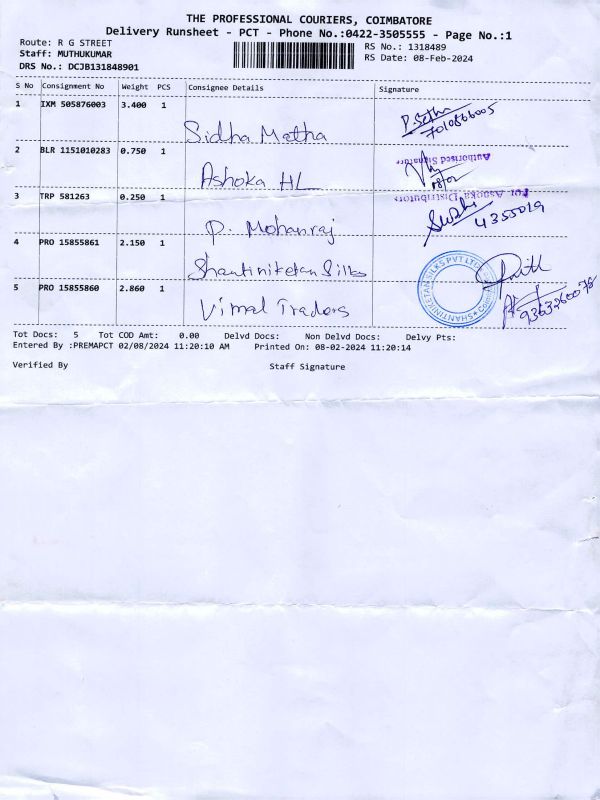 THE PROFESSIONAL COURIERS, COIMBATORE
Delivery Runsheet - PCT - Phone No.:0422-3505555 - Page No.:1
Route: R G STREET
RS No.: 1318489
Staff: MUTHUKUMAR
RS Date: 08-Feb-2024
DRS No.: DCJB131848901
S No Consignment No Weight PCS Consignee Details Signature
1 IXM 505876003 3.400 1 Sidha Metha
2 BLR 1151010283 0.750 1 Ashoka HL
Authorised Signature
For Ashoka Distributors
3 TRP 581263 0.250 1 P. Mohanraj
4355019
4 PRO 15855861 2.150 1 Shantiniketan Silks
SHANTINIKETAN SILKS PVT LTD
5 PRO 15855860 2.860 1 Vimal Traders
Tot Docs: 5 Tot COD Amt: 0.00 Delvd Docs: Non Delvd Docs: Delvy Pts:
Entered By :PREMAPCT 02/08/2024 11:20:10 AM Printed On: 08-02-2024 11:20:14
Verified By Staff Signature